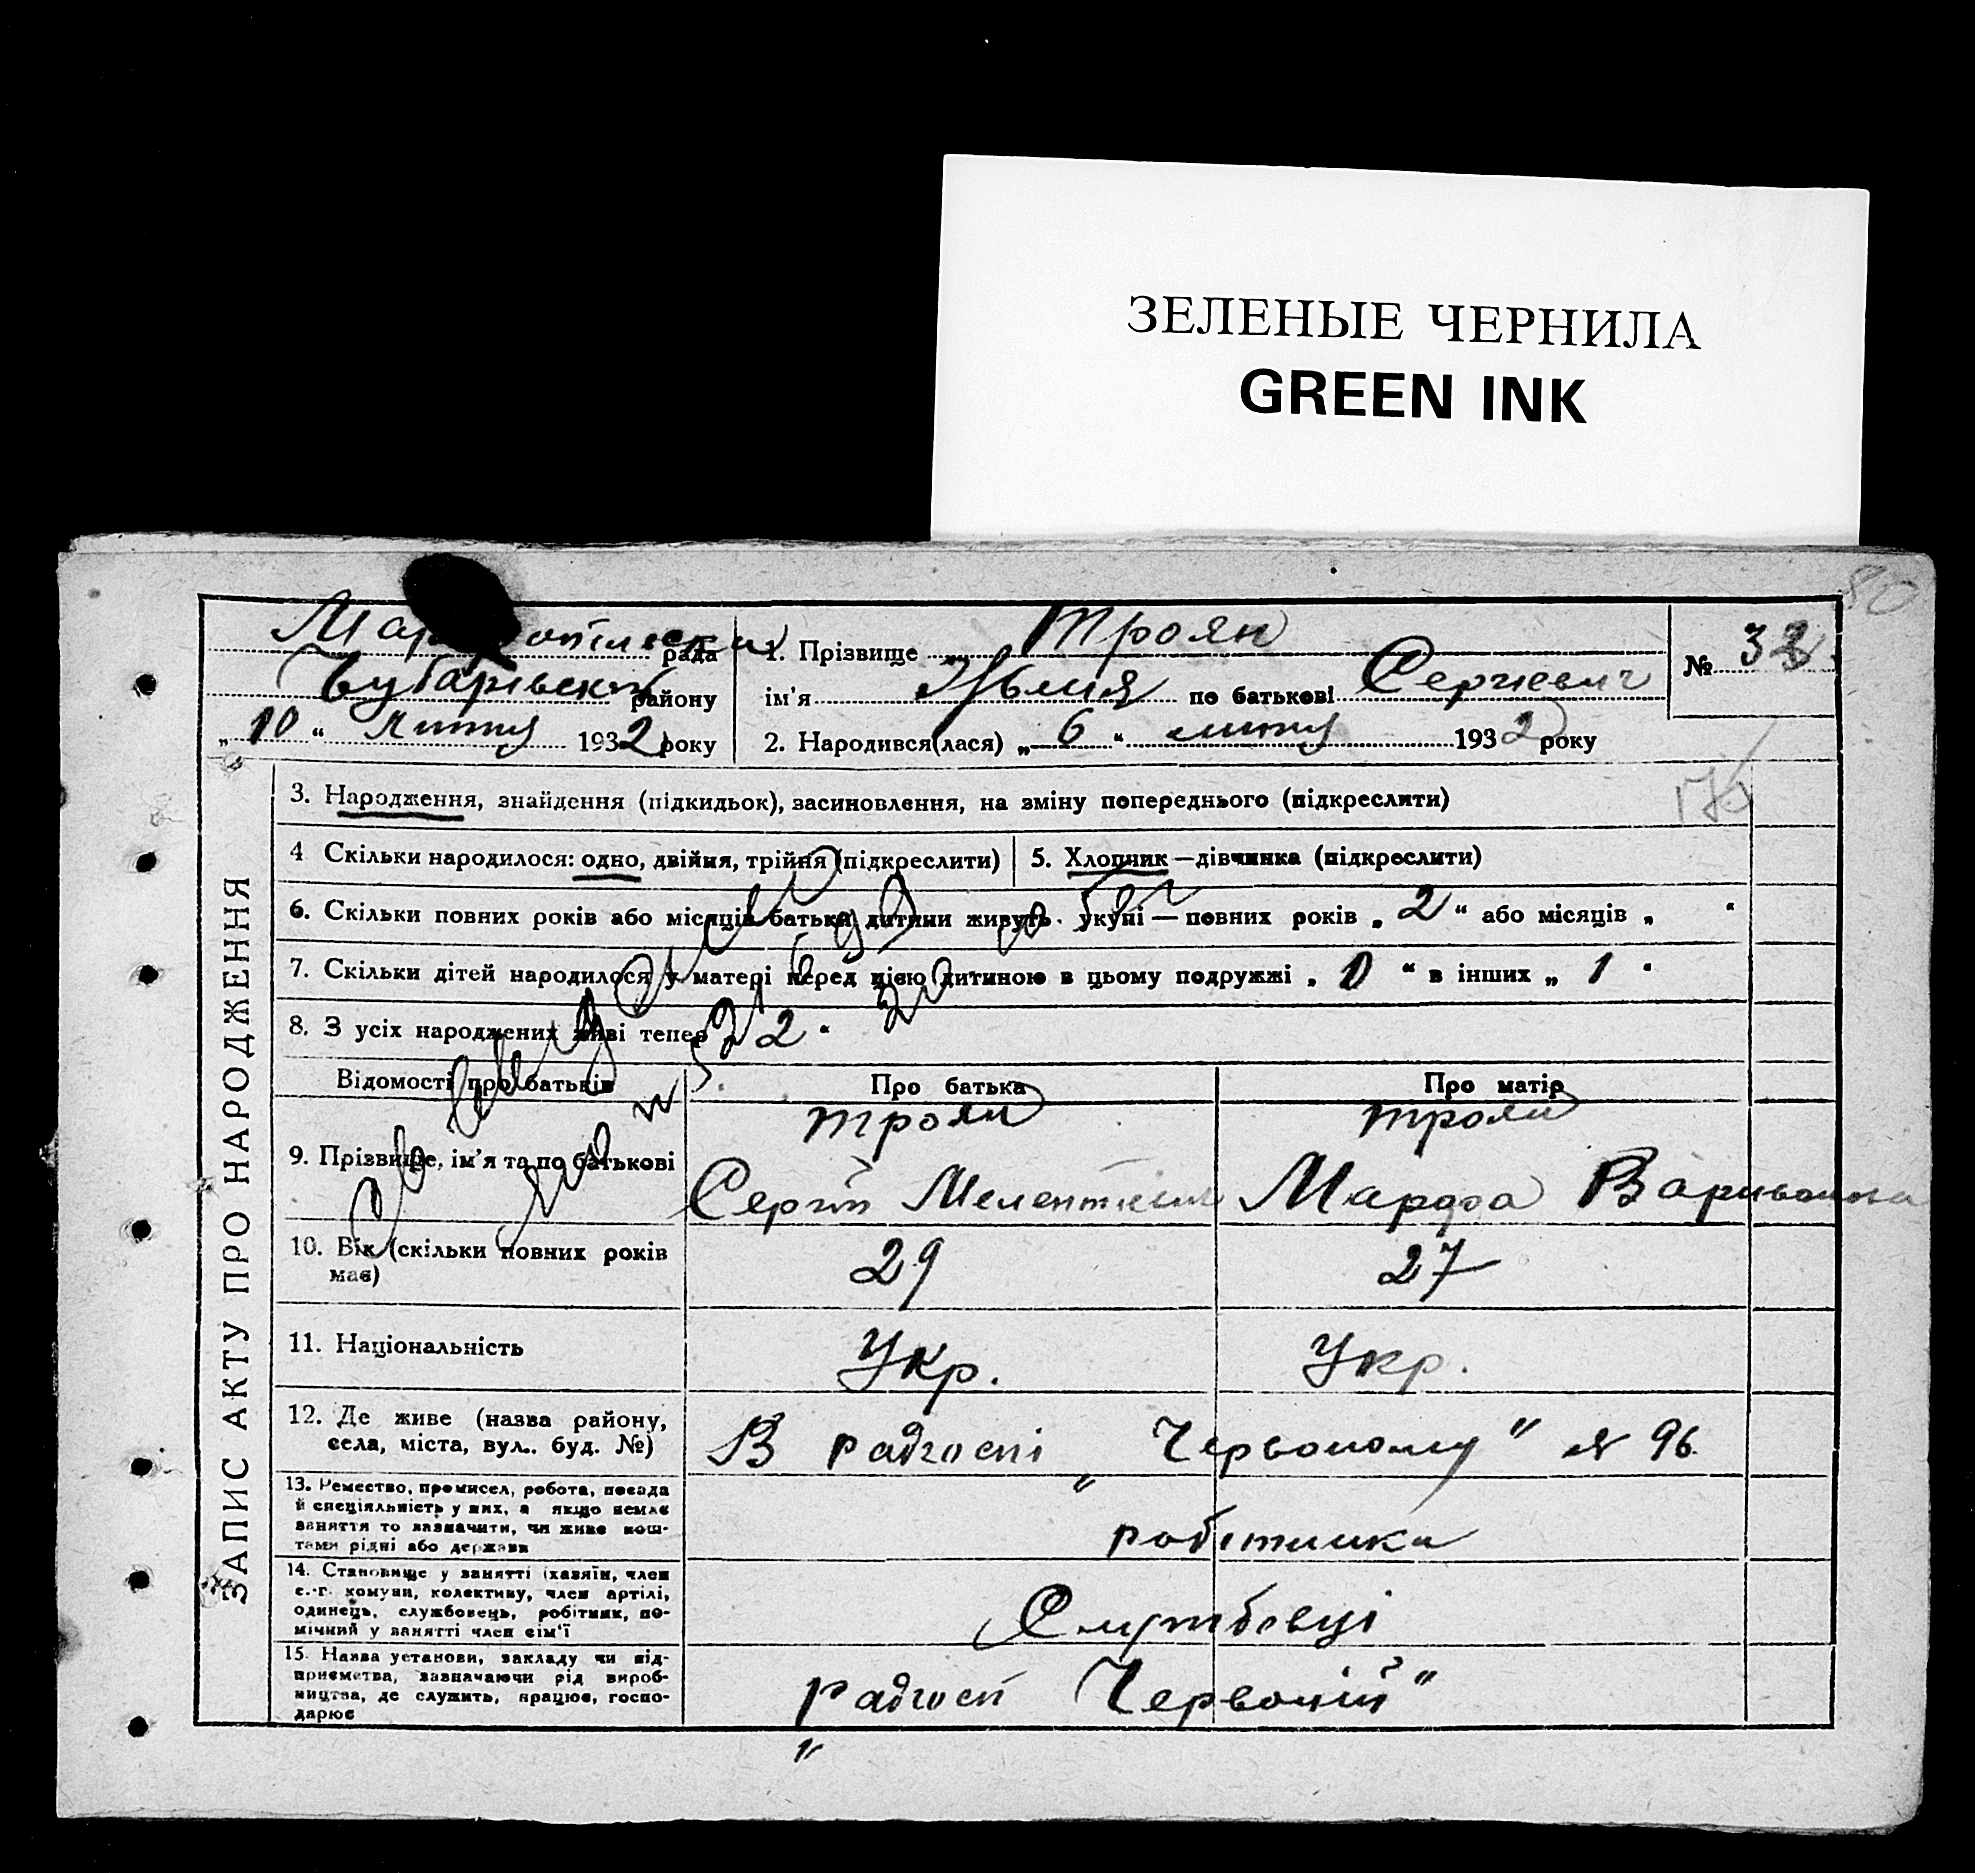 ЗЕЛЕНЫЕ ЧЕРНИЛА
GREEN INK
80
рада
Чубарівськ району
„ 10 “ Лютня 1932 року
1. Прізвище Троян
ім'я по батькові Сергієвич
2. Народився(лася) „ 6 “ лютня 1932 року
№ 33
ЗАПИС АКТУ ПРО НАРОДЖЕННЯ
3. Народження, знайдення (підкидьок), засиновлення, на зміну попереднього (підкреслити)
4 Скільки народилося: одно, двійня, трійня (підкреслити)
5. Хлопчик—дівчинка (підкреслити)
6. Скільки повних років або місяців батьки дитини живуть укупі — повних років „ 2 “ або місяців „ “
7. Скільки дітей народилося у матері перед цією дитиною в цьому подружжі „ 0 “ в інших „ 1 “
8. З усіх народжених живі тепер „ 2 “
Відомості про батьків
Про батька
Про матір
9. Прізвище, ім'я та по батькові
Троян
Сергій
Троян
Марфа
10. Вік (скільки повних років має)
29
27
11. Національність
Укр.
Укр.
12. Де живе (назва району,
села, міста, вул., буд. №)
В радгоспі „Червоному“ № 96
13. Ремество, промисел, робота, посада
й спеціяльність у них, а якщо немає
заняття то зазначити, чи живе кош-
тами рідні або держави
робітники
14. Становище у занятті (хазяїн, член
с.-г. комуни, колективу, член артілі,
одинець, службовець, робітник, по-
мічний у занятті член сім'ї
Службовці
15. Назва установи, закладу чи під-
приємства, зазначаючи рід вироб-
ництва, де служить, працює, госпо-
дарює
радгосп „Червоній“